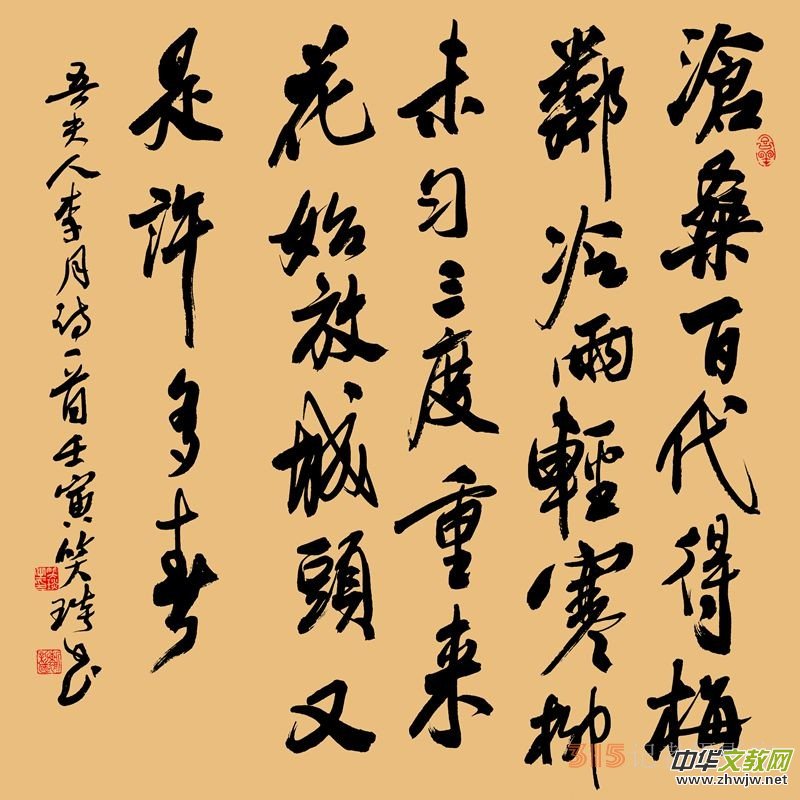 滄桑百代得梅
鄰冷雨輕寒柳
未匀三度重来
花始放城頭又
是許多春
吾夫人李月诗一首壬寅笑琦书
315记者摄影家
中华文教网
www.zhwjw.net